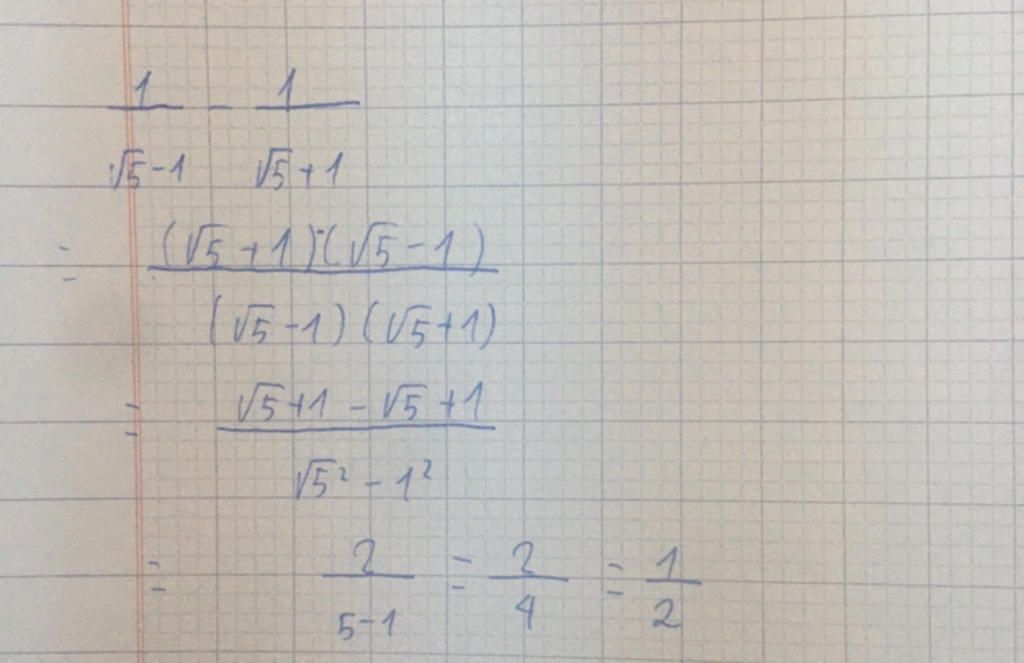 1/(√5-1) - 1/(√5+1)
= (√5+1)-(√5-1)/(√5-1)(√5+1)
= (√5+1-√5+1)/(√5²-1²)
= 2/(5-1) = 2/4 = 1/2